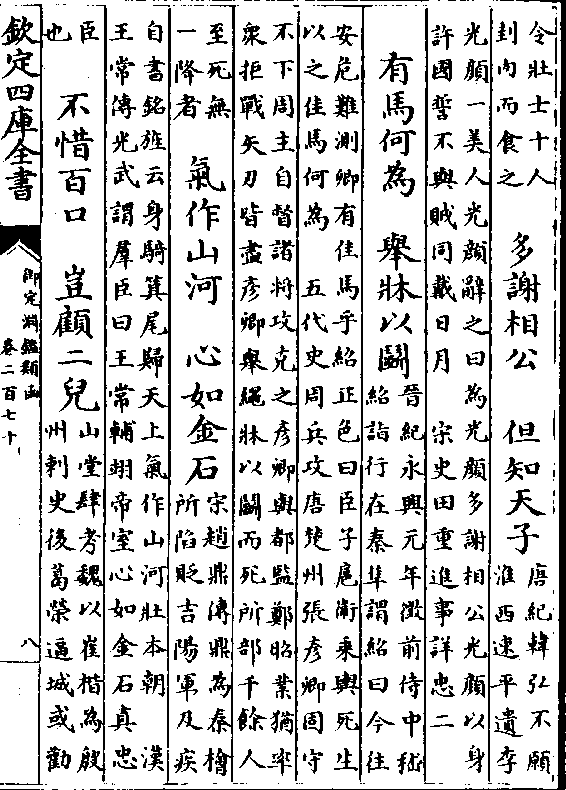 令壯士十人
刲肉而食之
多謝相公　但知天子
唐紀韓弘不願
淮西速平遺李
光顔一美人光顔辭之曰為光顔多謝相公光顔以身
許國誓不與賊同戴日月　宋史田重進事詳忠二
有馬何為　舉牀以鬬
晉紀永興元年徵前侍中嵇
紹詣行在秦準謂紹曰今往
安危難測卿有佳馬乎紹正色曰臣子扈衛乘輿死生
以之佳馬何為　五代史周兵攻唐楚州張彦卿固守
不下周主自督諸將攻克之彦卿與都監鄭昭業猶率
衆拒戰矢刃皆盡彦卿舉繩牀以鬬而死所部千餘人
至死無
一降者
氣作山河　心如金石
宋趙鼎傳鼎為秦檜
所陷貶吉陽軍及疾
自書銘旌云身騎箕尾歸天上氣作山河壯本朝　漢
王常傳光武謂羣臣曰王常輔翊帝室心如金石真忠
臣
也
不惜百口　豈顧二兒
山堂肆考魏以崔楷為殷
州刺史後葛榮逼城或勸
欽定四庫全書
御定淵鑑類函
卷二百七十
八